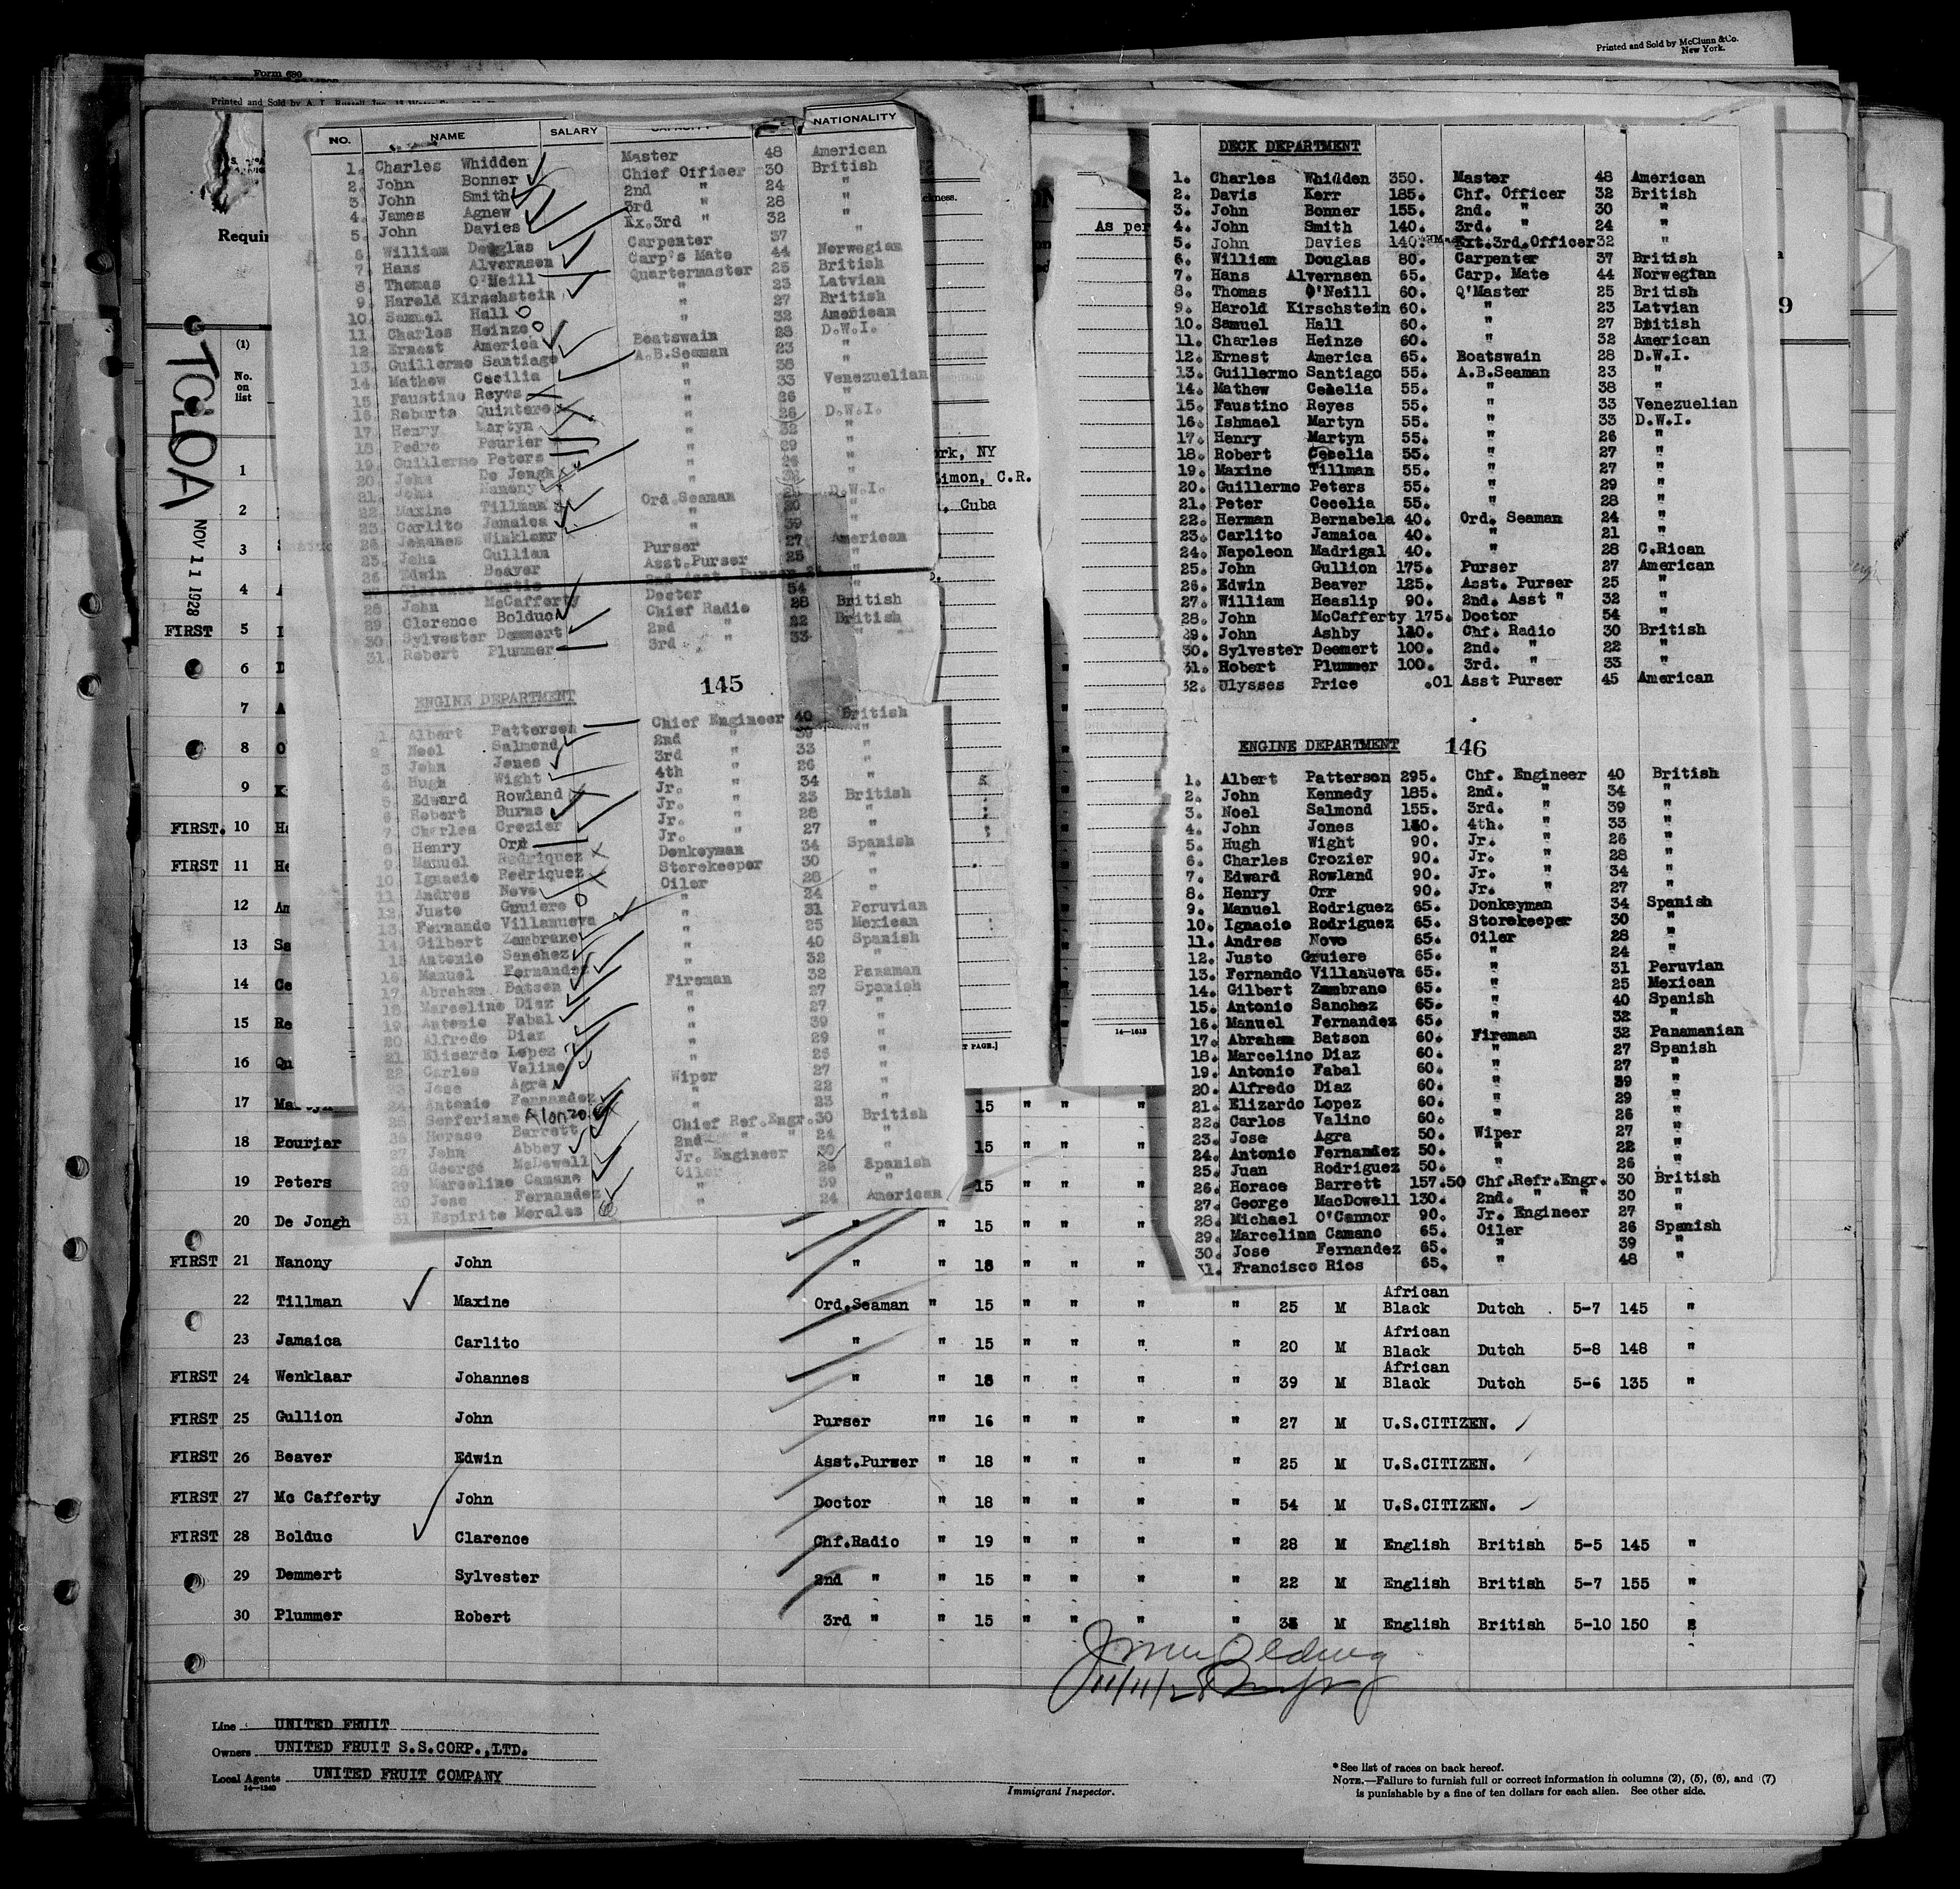 Printed and Sold by McClunn & Co.
New York.
Form 680
Printed and Sold by A. L. Russell, Inc.
Requir
TOLOA
NOV 11 1928
(1)
No.
on
list
NO. NAME SALARY CAPACITY NATIONALITY
1. Charles Whidden Master 48 American
2. John Bonner Chief Officer 30 British
3. John Smith 2nd " 24 "
4. James Agnew 3rd " 28 "
5. John Davies Ex.3rd " 32 "
6. William Douglas Carpenter 37 "
7. Hans Alvernsen Carp's Mate 44 Norwegian
8. Thomas O'Neill Quartermaster 25 British
9. Harold Kirschstein " 23 Latvian
10. Samuel Hall " 27 British
11. Charles Heinze " 32 American
12. Ernest America Boatswain 28 D.W.I.
13. Guillermo Santiago A.B.Seaman 23 "
14. Mathew Cecilia " 38 "
15. Faustino Reyes " 33 Venezuelian
16. Roberto Quintero " 26 "
17. Henry Martyn " 26 D.W.I.
18. Pedro Pourier " 32 "
19. Guillermo Peters " 29 "
20. John De Jongh " 26 "
21. John Nanony "
22. Maxine Tillman Ord.Seaman D.W.I.
23. Carlito Jamaica " 20 "
24. Johanes Winklaar " 39 "
25. John Gullion Purser 27 American
26. Edwin Beaver Asst.Purser 25 "
2nd Asst. Purser
28. John McCafferty Doctor 54 "
29. Clarence Bolduc Chief Radio 28 British
30. Sylvester Demmert 2nd " 22 British
31. Robert Plummer 3rd " 33 "
145
ENGINE DEPARTMENT
1. Albert Patterson Chief Engineer 40 British
2. Noel Salmond 2nd " 39 "
3. John Jones 3rd " 33 "
4. Hugh Wight 4th " 26 "
5. Edward Rowland Jr. " 34 "
6. Robert Burns Jr. " 23 British
7. Charles Crozier Jr. " 28 "
8. Henry Orr Jr. " 27 "
9. Manuel Rodriquez Donkeyman 34 Spanish
10. Ignacio Rodriquez Storekeeper 30 "
11. Andres Novo Oiler 28 "
12. Justo Gruiere " 24 "
13. Fernando Villanueva " 31 Peruvian
14. Gilbert Zambrano " 25 Mexican
15. Antonio Sanchez " 40 Spanish
16. Manuel Fernandez " 32 "
17. Abraham Batson Fireman 32 Panaman
18. Marceline Diaz " 27 Spanish
19. Antonio Fabal " 27 "
20. Alfredo Diaz " 39 "
21. Elisardo Lopez " 29 "
22. Carlos Valino " 26 "
23. Jose Agra Wiper 27 "
24. Antonio Fernandez " 22 "
25. Serferiano Alonzo " 23 "
26. Horace Barrett Chief Ref.Engr. 30 British
27. John Abbey 2nd " " 24 "
28. George McDowell Jr. Engineer 30 "
29. Marceline Camano Oiler 26 Spanish
30. Jose Fernandez " 39 "
31. Espirito Morales " 24 American
ckness.
rk, NY
Limon, C.R.
, Cuba
T PAGE.]
As per
14—1613
9
DECK DEPARTMENT
1. Charles Whidden 350. Master 48 American
2. Davis Kerr 185. Chf. Officer 32 British
3. John Bonner 155. 2nd. " 30 "
4. John Smith 140. 3rd. " 24 "
5. John Davies 140. Ext.3rd.Officer 32 "
6. William Douglas 80. Carpenter 37 British
7. Hans Alvernsen 65. Carp. Mate 44 Norwegian
8. Thomas O'Neill 60. Q'Master 25 British
9. Harold Kirschstein 60. " 23 Latvian
10. Samuel Hall 60. " 27 British
11. Charles Heinze 60. " 32 American
12. Ernest America 65. Boatswain 28 D.W.I.
13. Guillermo Santiago 55. A.B.Seaman 23 "
14. Mathew Cecelia 55. " 38 "
15. Faustino Reyes 55. " 33 Venezuelian
16. Ishmael Martyn 55. " 33 D.W.I.
17. Henry Martyn 55. " 26 "
18. Robert Cecelia 55. " 27 "
19. Maxine Tillman 55. " 27 "
20. Guillermo Peters 55. " 29 "
21. Peter Cecelia 55. " 28 "
22. Herman Bernabela 40. Ord. Seaman 24 "
23. Carlito Jamaica 40. " 21 "
24. Napoleon Madrigal 40. " 28 C.Rican
25. John Gullion 175. Purser 27 American
26. Edwin Beaver 125. Asst. Purser 25 "
27. William Heaslip 90. 2nd. Asst " 32 "
28. John McCafferty 175. Doctor 54 "
29. John Ashby Chf. Radio 30 British
30. Sylvester Deemert 100. 2nd. " 22 "
31. Robert Plummer 100. 3rd. " 33 "
32. Ulysses Price .01 Asst Purser 45 American
ENGINE DEPARTMENT 146
1. Albert Patterson 295. Chf. Engineer 40 British
2. John Kennedy 185. 2nd. " 34 "
3. Noel Salmond 155. 3rd. " 39 "
4. John Jones 4th. " 33 "
5. Hugh Wight 90. Jr. " 26 "
6. Charles Crozier 90. Jr. " 28 "
7. Edward Rowland 90. Jr. " 34 "
8. Henry Orr 90. Jr. " 27 "
9. Manuel Rodriguez 65. Donkeyman 34 Spanish
10. Ignacio Rodriguez 65. Storekeeper 30 "
11. Andres Novo 65. Oiler 28 "
12. Justo Gruiere 65. " 24 "
13. Fernando Villanueva 65. " 31 Peruvian
14. Gilbert Zambrano 65. " 25 Mexican
15. Antonio Sanchez 65. " 40 Spanish
16. Manuel Fernandez 65. " 32 "
17. Abraham Batson 60. Fireman 32 Panamanian
18. Marcelino Diaz 60. " 27 Spanish
19. Antonio Fabal 60. " 27 "
20. Alfredo Diaz 60. " 39 "
21. Elizardo Lopez 60. " 29 "
22. Carlos Valino 60. " 26 "
23. Jose Agra 50. Wiper 27 "
24. Antonio Fernandez 50. " 22 "
25. Juan Rodriguez 50. " 26 "
26. Horace Barrett 157.50 Chf.Refr.Engr. 30 British
27. George MacDowell 130. 2nd. " " 30 "
28. Michael O'Cannor 90. Jr. Engineer 27 "
29. Marcelinn Camano 65. Oiler 26 Spanish
30. Jose Fernandez 65. " 39 "
31. Francisco Rios 65. " 48 "
1
2
3
4
FIRST 5
6
7
8
9
FIRST. 10
FIRST 11
12
13
14
15
16
17 Martyn 15 " " "
18 Pourier 15 " " "
19 Peters 15 " " "
20 De Jongh " " 15 " " "
FIRST 21 Nanony John " " 18 " " "
22 Tillman Maxine Ord.Seaman " 15 " " " " 25 M African Black Dutch 5-7 145 "
23 Jamaica Carlito " " 15 " " " " 20 M African Black Dutch 5-8 148 "
FIRST 24 Wenklaar Johannes " " 18 " " " " 39 M African Black Dutch 5-6 135 "
FIRST 25 Gullion John Purser "" 16 " " " " 27 M U.S.CITIZEN.
FIRST 26 Beaver Edwin Asst.Purser " 18 " " " " 25 M U.S.CITIZEN.
FIRST 27 Mc Cafferty John Doctor " 18 " " " " 54 M U.S.CITIZEN.
FIRST 28 Bolduc Clarence Chf.Radio " 19 " " " " 28 M English British 5-5 145 "
29 Demmert Sylvester 2nd " " 15 " " " " 22 M English British 5-7 155 "
30 Plummer Robert 3rd " " 15 " " " " M English British 5-10 150
11/11/28
Line UNITED FRUIT
Owners UNITED FRUIT S.S.CORP.,LTD.
Local Agents UNITED FRUIT COMPANY
14—1240
Immigrant Inspector.
*See list of races on back hereof.
NOTE.—Failure to furnish full or correct information in columns (2), (5), (6), and (7)
is punishable by a fine of ten dollars for each alien. See other side.